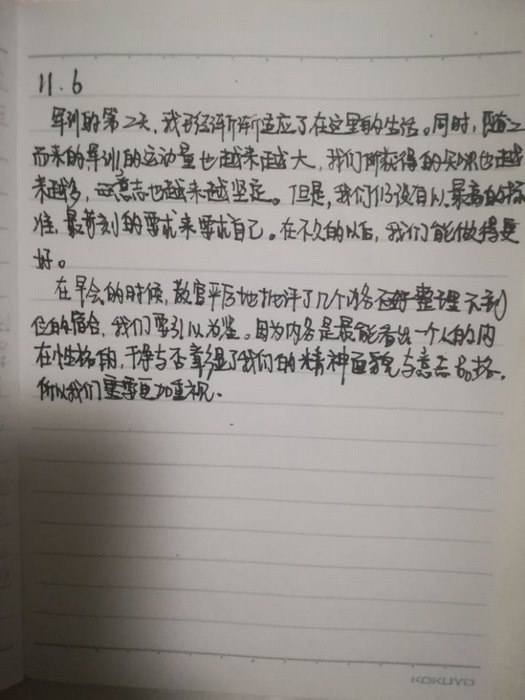 11.6
军训的第二天,我已经渐渐适应了在这里的生活。同时,随之
而来的军训的运动量也越来越大,我们所获得的知识也越
来越多,意志也越来越坚定。但是,我们仍没有以最高的标
准,最苛刻的要求来要求自己。在不久的以后,我们能做得更
好。
在早会的时候,教官严厉地批评了几个内务整理不到
位的宿舍,我们要引以为鉴。因为内务是最能看出一个人的内
在性格的,干净与否彰显了我们的精神面貌与意志品格,
所以我们需要更加重视。
KOKUYO